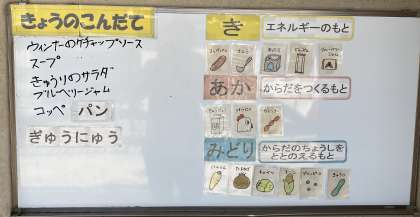 きょうのこんだて
ウィンナーのケチャップソース
スープ
きゅうりのサラダ
ブルーベリージャム
コッペ パン
ぎゅうにゅう
き エネルギーのもと
あか からだをつくるもと
みどり からだのちょうしを
ととのえるもと